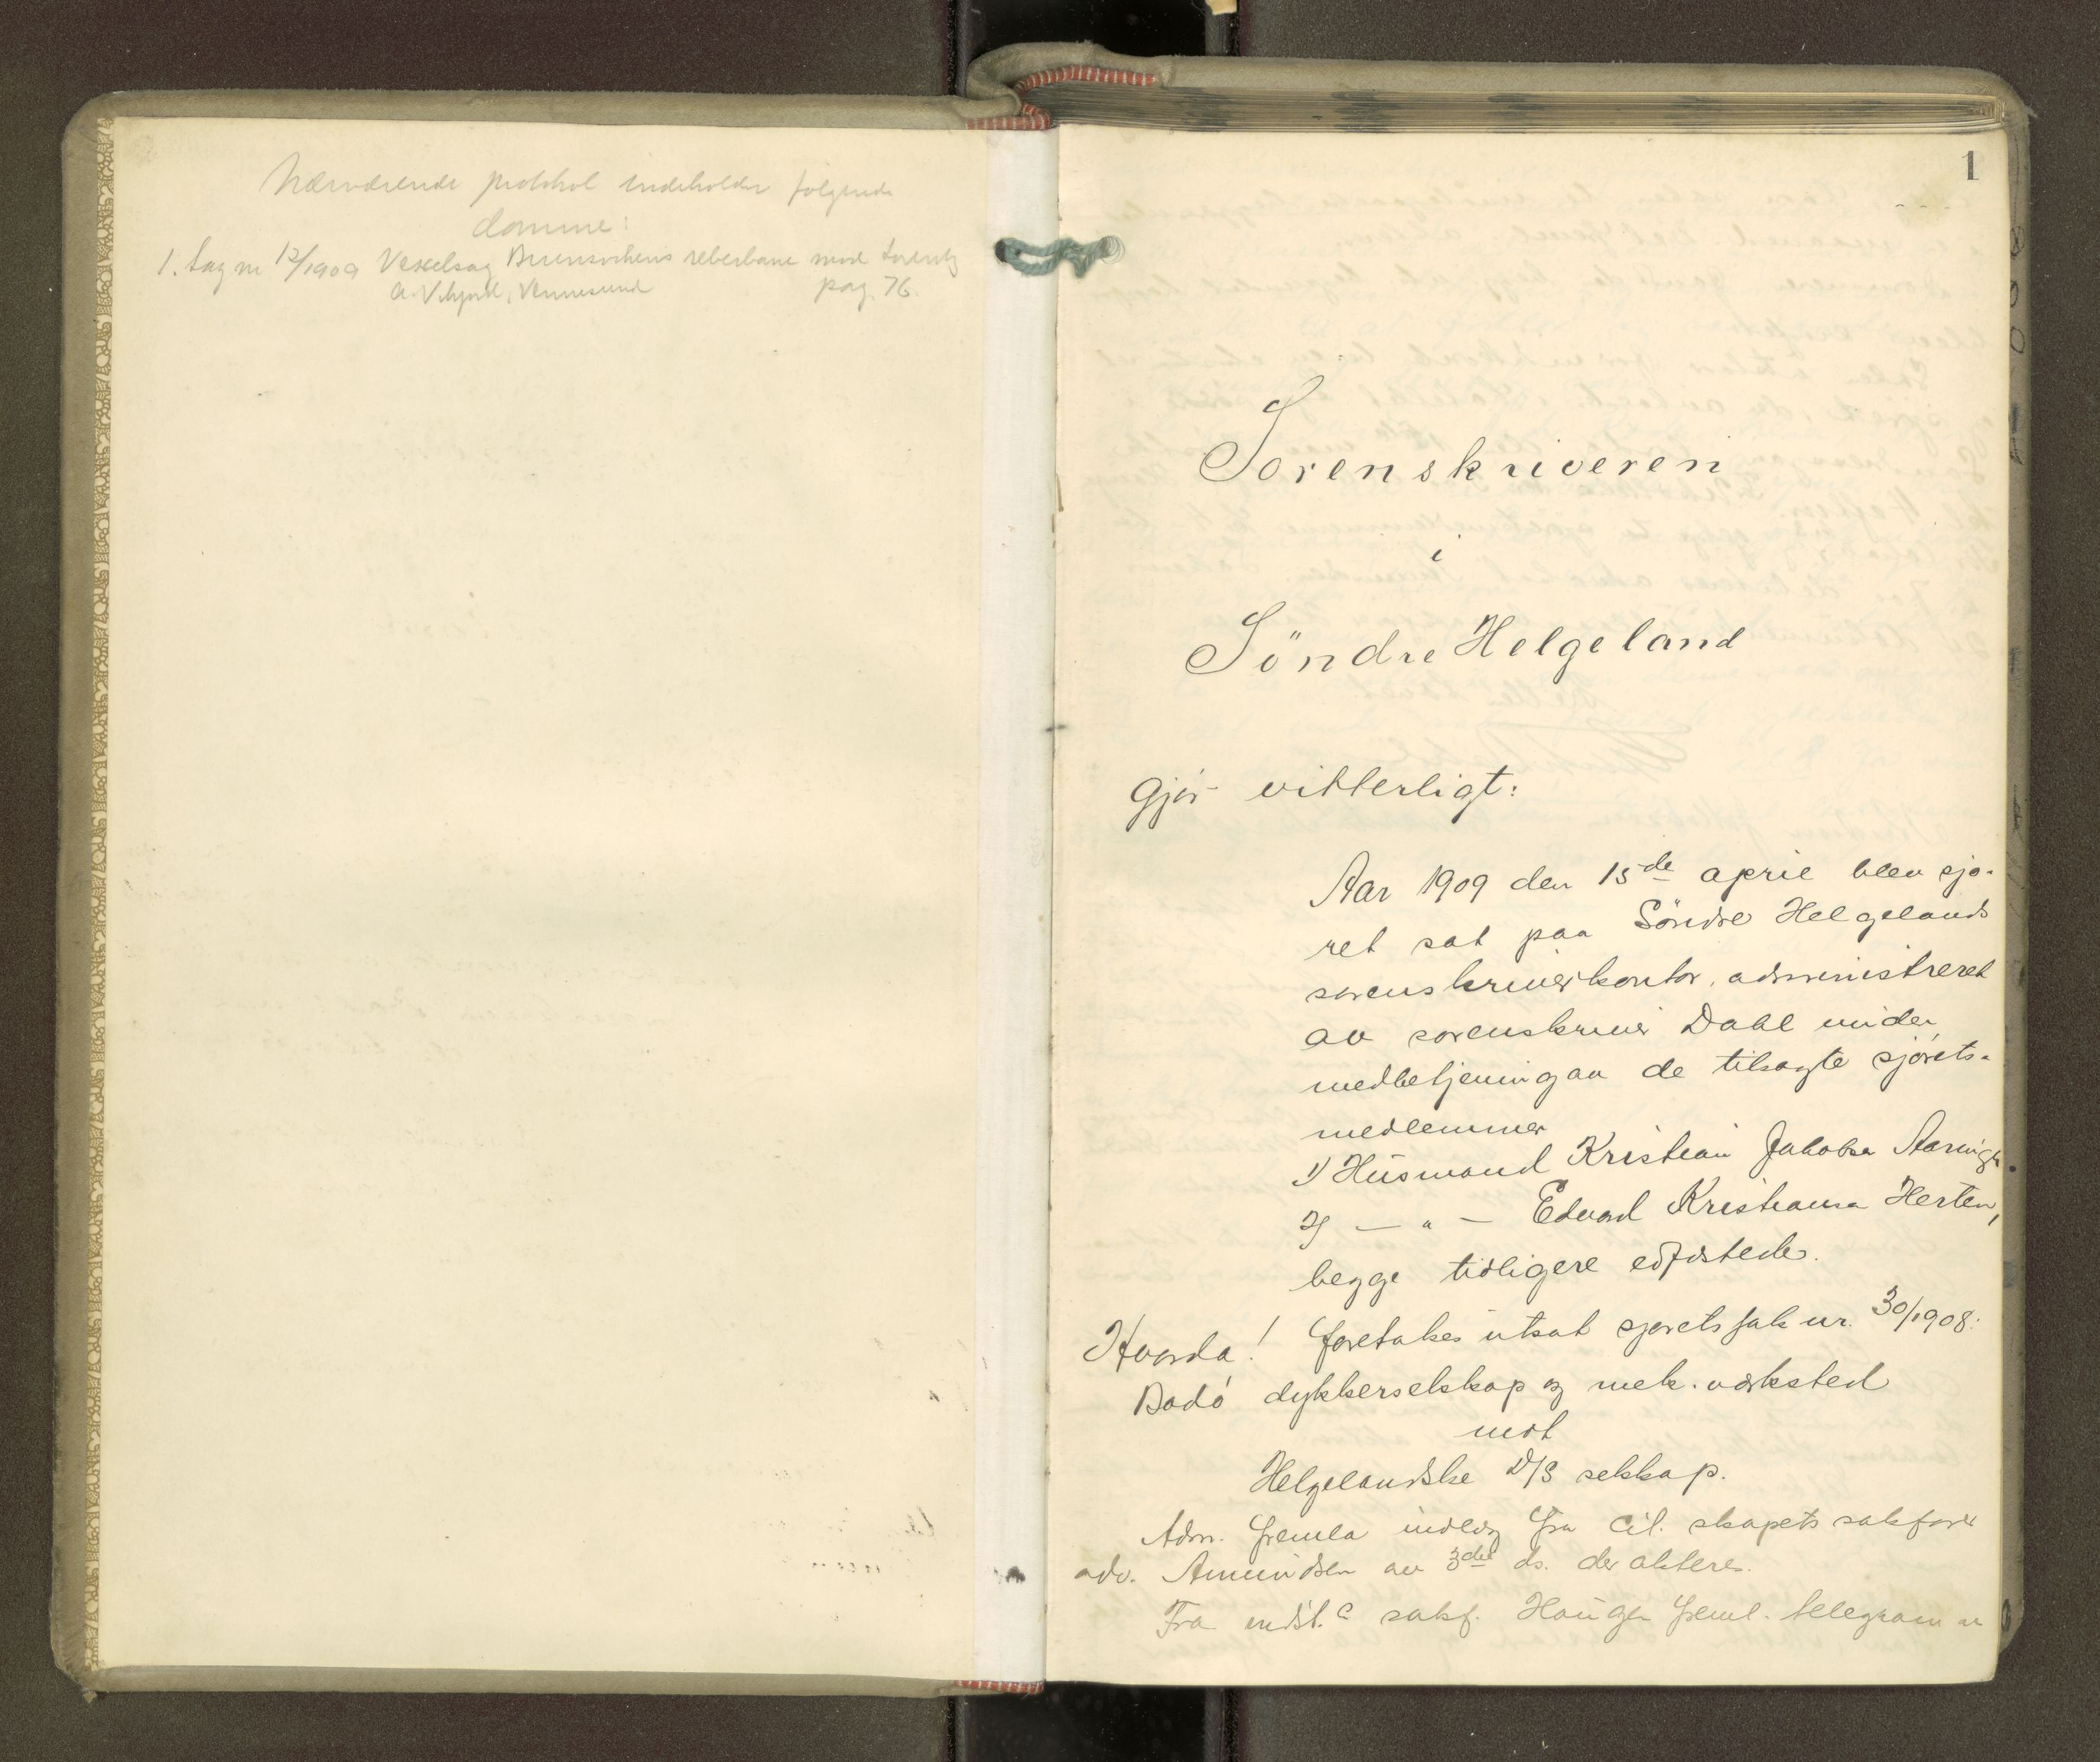 Nærværende protokol indeholder følgende
domme:
1. Sag nr 12/1909 Vexelsag reberbane mod
A. Vennesund pag. 76.
1
Sorenskriveren
i
Söndre Helgeland
Gjör vitterligt:
Aar 1909 den 15de april blev sjø-
ret sat paa Söndre Helgelands
sorenskriverkontor, administreret
av sorenskriver Dahl under
medbetjening av de tilsagte sjørets-
medlemmer
1) Husmand Kristian Jakobsen
2) — " — Edvard Kristiansen Herten,
begge tidligere edfæstede.
Hvorda! foretakes utsat sjøretssak nr. 30/1908:
Bodø dykkerselskap og mek. værksted
mot
Helgelandske D/S selskap.
Adm. freml. indlæg fra Cit. skapets sakfører
adv. Amundsen av 3die ds. der akteres.
Fra indst. C sakf. Haugen freml. telegram av